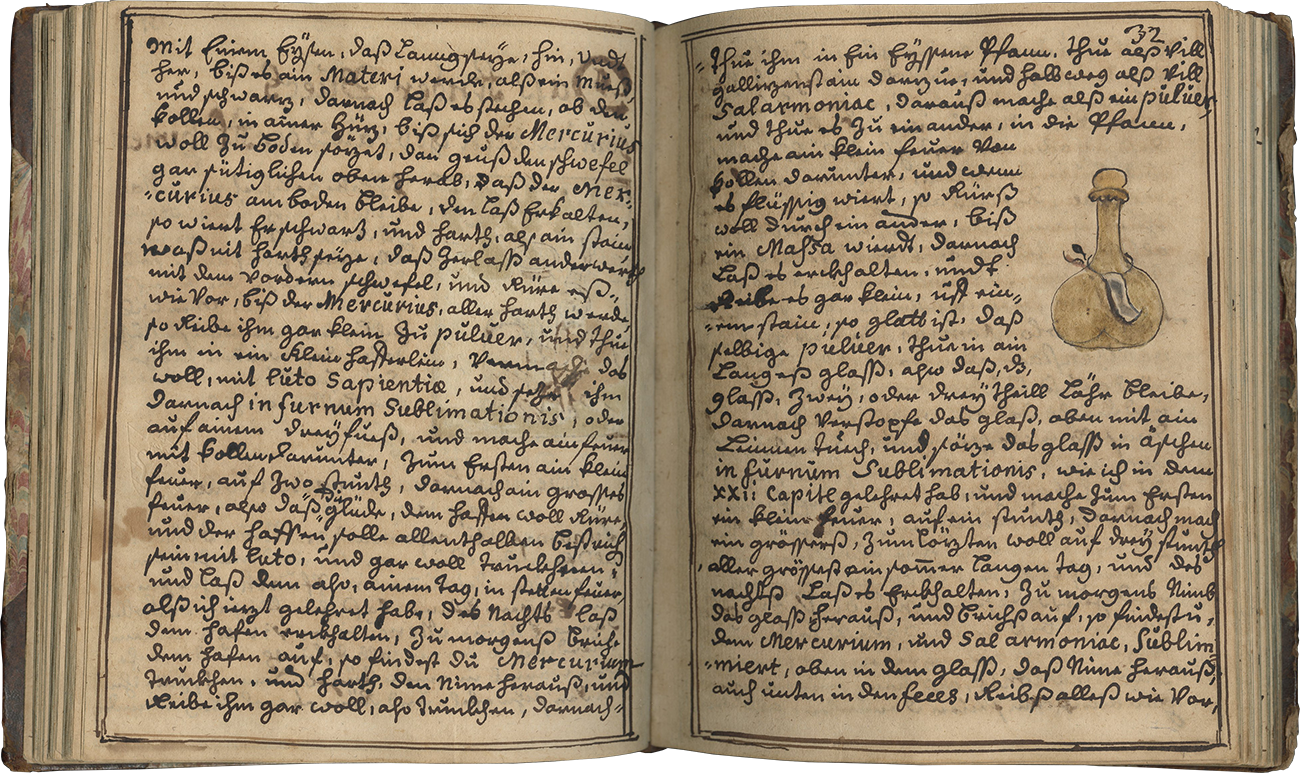 Mit Einem Eysen, daß Lanng seye, hin, undt
her, biß es ain Materi werde, alß ein Mueß
und schwartz, darnach Laß es stehen, ob den
Kollen, in ainer Hütz, biß sich der Mercurius
woll zu boden sötzet, dan geuß den schwefel
gar sütiglichen oben herab, daß der Mer=
=curius am boden bleibe, den laß Erkalten,
so wiert Er schwartz, und harth, alß ain stain
waß nit harth seye, daß Zerlaß anderwerth
mit dem vordern schwefel, und Rüre eß,
wie Vor, biß der Mercurius, aller harth werde
so Reibe ihm gar klein zu puluer, und thue
ihm in ein klein hafferlein, Vermache das
woll, mit luto Sapientiæ, und setze ihm
Darnach in furnum Sublimationis, oder
auf ainem dreyfueß, und mache ain feuer
mit Kollen darunter, zum Ersten ain klein
feuer, auf zwo stundt, darnach ain grosses
feuer, also daß glüde, dem haffen woll Rüre,
und der haffen solle allenthalben bestrich
sein mit luto, und gar woll truckhnen,
und laß dem also, ainem tag, in stetten feuer,
alß ich ietzt gelehret habe, des Nachts laß
dem hafen erckhalten, zu morgenß briche
dem hafen auf, so findest du Mercurium
truckhen, und harth, den Nime herauß, und
Reibe ihm gar woll, also truckhen, darnach=
32
=thue ihm in Ein Eyssene Pfann, thue alß vill
gallitzenstain darzue, und halb weg alß vill
Salarmoniac, darauß mache alß ein puluer,
und thue es zu ein ander, in die Pfann,
mache ain klein feuer von
Kollen darunter, und wenn
es flüssig wiert, so Rürß
woll durch ein ander, biß
ein Massa wierdt, darnach
Laß es erckhalten, undt
Reibe es gar klein, uff ein=
=em stain, so glatt ist, daß
selbige puluer, thue in ain
Langeß glaß, also daß, dz,
glaß, zwey, oder drey theill Lähr bleibe,
Darnach Verstopfe das glaß, oben mit ain
Leinnen tuech, und sötze das glaß in äschen
in furnum Sublimationis, wie ich in dem
XXi: Capitl gelehret hab, und mache zum Ersten
ein klein feuer, auf ein stundt, darnach mach
ein grösserß, zum lötzten woll auf drey stundt
aller grösseß ein sommer langen tag, und des
nachtß Laß es Erckhalten, zu morgens Nimb
das glaß herauß, und brichß auf, so findestu,
dem Mercurium, und Sal armoniac, Sublim
=miert, oben in dem glaß, daß Nime herauß,
auch unten in den feces, Reibß alleß wie Vor,